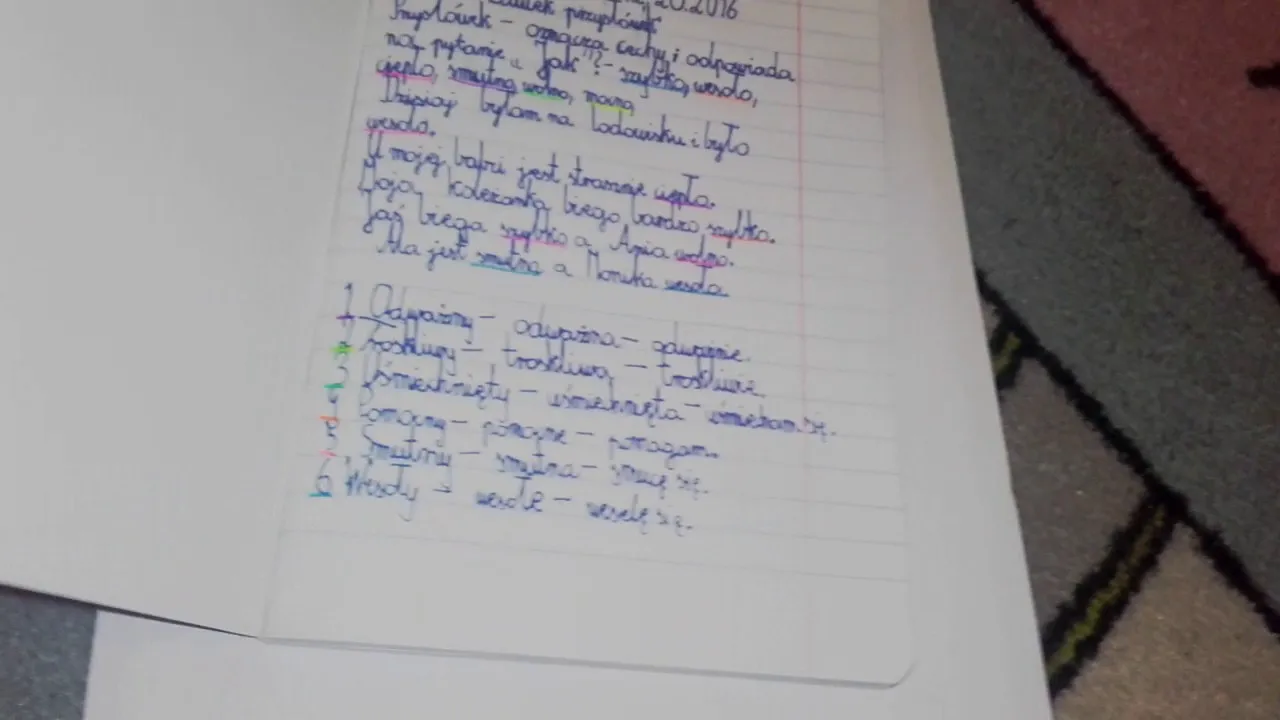 20.2016
przysłówek
Przysłówek - oznacza cechy i odpowiada
na pytanie „Jak"?- szybko, wesoło,
ciepło, smutno, wolno, mocno
Dzisiaj byłam na lodowisku i było
wesoło.
U mojej babci jest strasznie ciepło.
Moja koleżanka biega bardzo szybko.
Jaś biega szybko a Ania wolno.
Ala jest smutna a Monika wesoła
1 Odważny - odważna - odważnie.
2 Troskliwy - troskliwa - troskliwie
3 Uśmiechnięty - uśmiechnięta - uśmiecham się.
4 Pomocny - pomocne - pomagam.
5 Smutny - smutna - smucę się.
6 Wesoły - wesołe - weselę się.